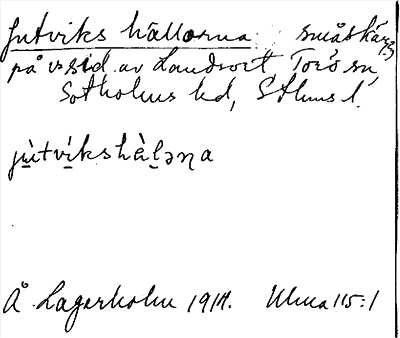 Jutviks hällorna småskär
på v. sid. av Landsort Torö sn,
Sotholms hd, Sthms l.
jùtvíkshàḷəṇa
Å. Lagerholm 1914. Ulma 115:1